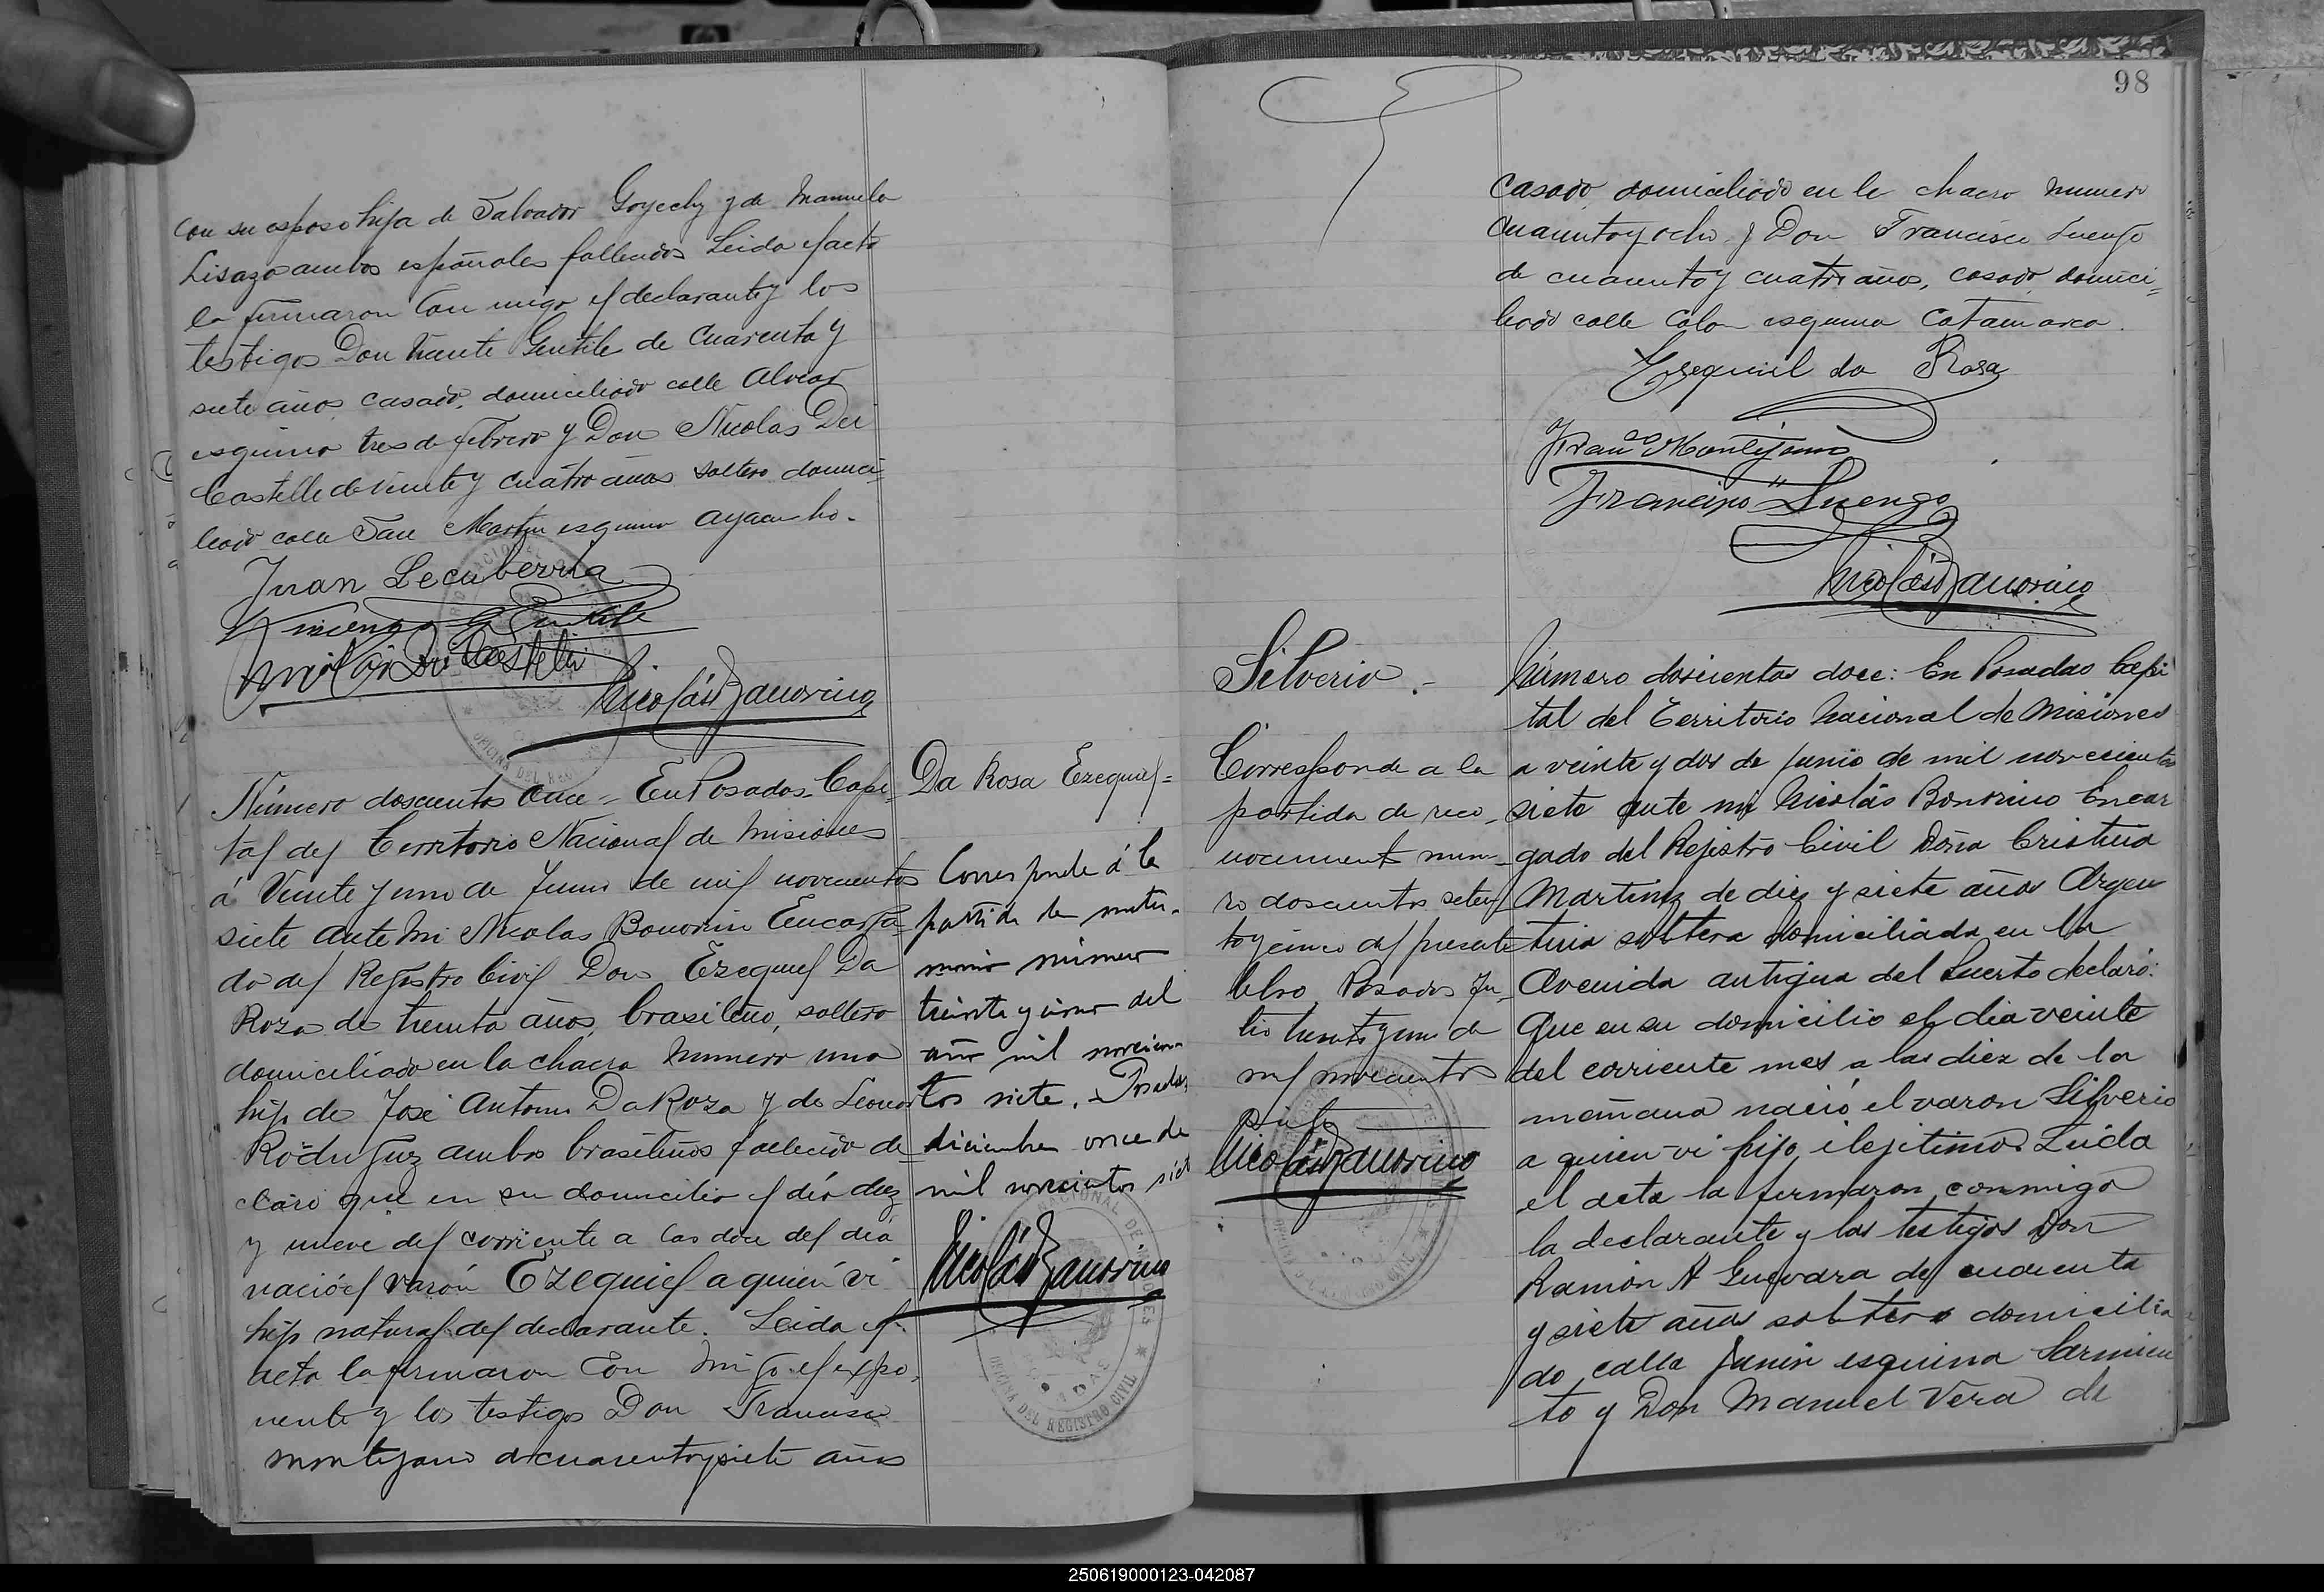 con su esposo hija de Salvador Goyechy y de Manuela
Lisazo ambos españoles fallecidos Leida el acta
la firmaron con migo el declarante y los
testigos Don Vicente Gentile de cuarenta y
siete años casado, domiciliado calle Alvear
esquina tres de febrero y Don Nicolas Dei
Castelle de veinte y cuatro años soltero domici=
liado calle San Martin esquina Ayacucho.
Juan Lecuberria
Vincenzo Gentile
Nicolás Dei Castelli
Nicolás Bonorino
Número doscientos once = En Posadas Capi=
tal del Territorio Nacional de Misiones
á Veinte y uno de Junio de mil novecientos
siete ante Mi Nicolas Bonorino Encarga=
do del Registro Civil Don Ezequiel Da
Roza de treinta años, brasileño, soltero
domiciliado en la chacra numero una
hijo de José Antonio Da Roza y de Leonor
Rodriguez ambos brasileños fallecido de=
claró que en su domicilio el día diez
y nueve del corriente a las doce del dia
nació el varón Ezequiel a quien vi
hijo natural del declarante. Leida el
acta la firmaron con migo el expo=
nente y los testigos Don Francisco
Montejano de cuarenta y siete años
Da Rosa Ezequiel=
Corresponde á la
partida de matri-
monio número
treinta y cinco del
año mil novecien-
tos siete. Posadas,
diciembre once de
mil novecientos siete
Nicolás Bonorino
REGISTRO CIVIL
98
casado domiciliado en la chacra numero
cuarenta y ocho y Don Francisco Luengo
de cuarenta y cuatro años, casado, domici=
liado calle Colon esquina Catamarca.
Ezequiel da Rosa
Franco Montejano
Francisco Luengo
Nicolás Bonorino
Silverio.-
Corresponde a la
partida de reco=
nocimiento nume-
ro doscientos seten=
ta y cinco del presente
libro, Posadas Ju=
lio treinta y uno de
mil novecientos
siete
Nicolás Bonorino
Número doscientos doce: En Posadas Capi
tal del Territorio Nacional de Misiones
a veinte y dos de Junio de mil novecientos
siete ante mi Nicolás Bonorino Encar
gado del Rejistro Civil Doña Cristina
Martinez de diez y siete años Argen
tina soltera domiciliada en la
Avenida antigua del Puerto declaró:
Que en su domicilio el dia veinte
del corriente mes a las diez de la
mañana nació el varon Silverio
a quien vi hijo ilejitimo. Leida
el acta la firmaron conmigo
la declarante y los testigos Don
Ramón A Guevara de cuarenta
y siete años soltero domicilia
do calle Junin esquina Sarmien
to y Don Manuel Vera de
250619000123-042087